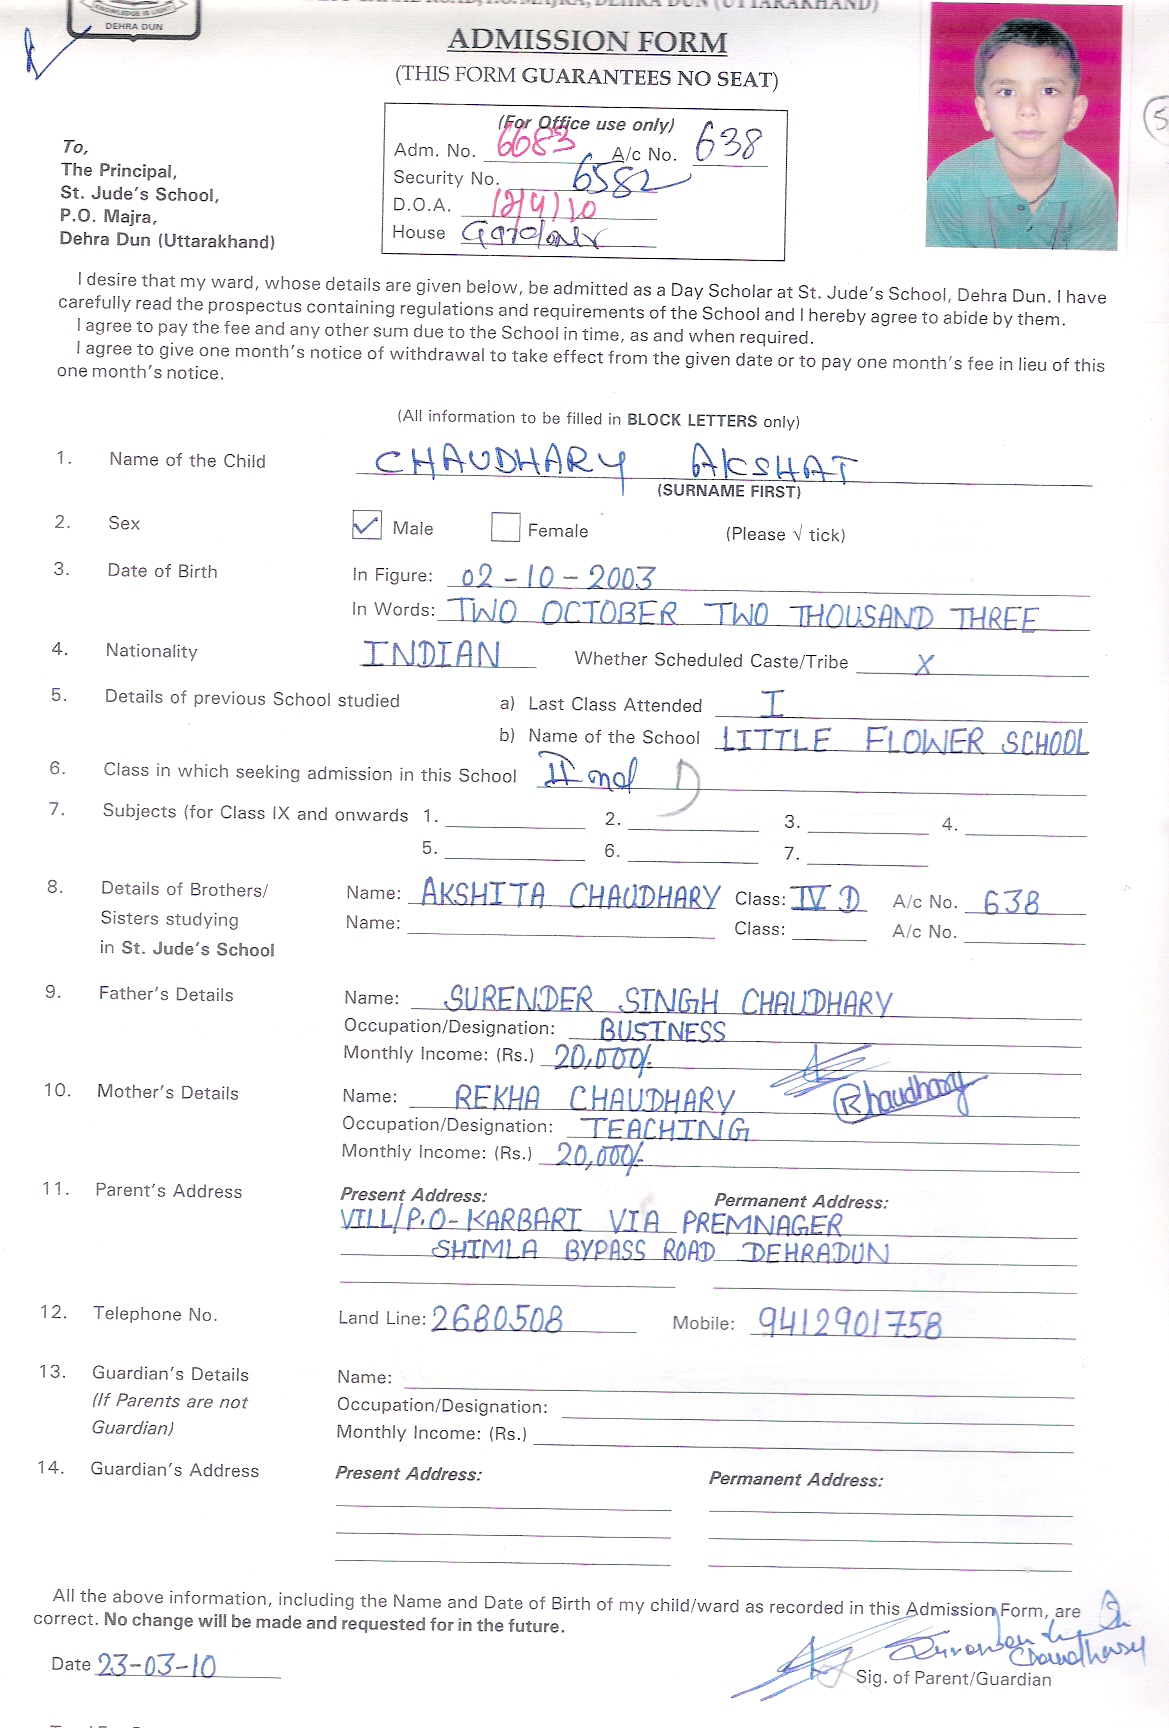 KNOWLEDGE IS LIGHT
DEHRA DUN
ADMISSION FORM
(THIS FORM GUARANTEES NO SEAT)
(For Office use only)
Adm. No. 6683 A/c No. 638
Security No. 6582
D.O.A. 12/4/10
House
To,
The Principal,
St. Jude's School,
P.O. Majra,
Dehra Dun (Uttarakhand)
I desire that my ward, whose details are given below, be admitted as a Day Scholar at St. Jude's School, Dehra Dun. I have
carefully read the prospectus containing regulations and requirements of the School and I hereby agree to abide by them.
I agree to pay the fee and any other sum due to the School in time, as and when required.
I agree to give one month's notice of withdrawal to take effect from the given date or to pay one month's fee in lieu of this
one month's notice.
(All information to be filled in BLOCK LETTERS only)
1. Name of the Child CHAUDHARY AKSHAT
(SURNAME FIRST)
2. Sex Male Female (Please √ tick)
3. Date of Birth In Figure: 02-10-2003
In Words: TWO OCTOBER TWO THOUSAND THREE
4. Nationality INDIAN Whether Scheduled Caste/Tribe X
5. Details of previous School studied a) Last Class Attended I
b) Name of the School LITTLE FLOWER SCHOOL
6. Class in which seeking admission in this School II nd D
7. Subjects (for Class IX and onwards 1. 2. 3. 4.
5. 6. 7.
8. Details of Brothers/ Name: AKSHITA CHAUDHARY Class: IV D A/c No. 638
Sisters studying Name: Class: A/c No.
in St. Jude's School
9. Father's Details Name: SURENDER SINGH CHAUDHARY
Occupation/Designation: BUSINESS
Monthly Income: (Rs.) 20,000/-
10. Mother's Details Name: REKHA CHAUDHARY RChaudhary
Occupation/Designation: TEACHING
Monthly Income: (Rs.) 20,000/-
11. Parent's Address Present Address: Permanent Address:
VILL/P.O-KARBARI VIA PREMNAGER
SHIMLA BYPASS ROAD DEHRADUN
12. Telephone No. Land Line: 2680508 Mobile: 9412901758
13. Guardian's Details Name:
(If Parents are not Occupation/Designation:
Guardian) Monthly Income: (Rs.)
14. Guardian's Address Present Address: Permanent Address:
All the above information, including the Name and Date of Birth of my child/ward as recorded in this Admission Form, are
correct. No change will be made and requested for in the future.
Date 23-03-10
Chaudhary
Sig. of Parent/Guardian